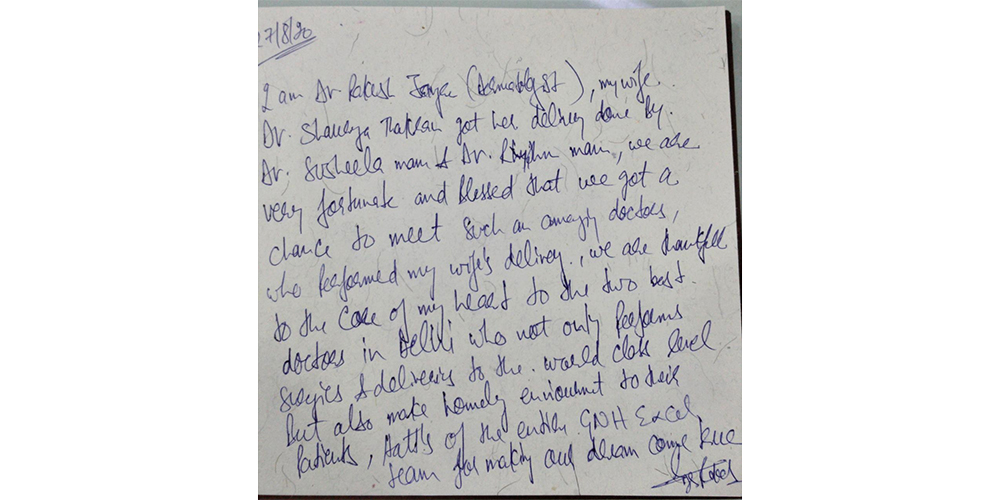 27/8/20
I am Dr Rakesh (Dermatologist), my wife.
Dr. Shaurya Thakran got her delivery done by.
Dr. Susheela mam & Dr. Rhythm mam, we are
very fortunate and blessed that we got a
chance to meet such an amazing doctors,
who performed my wife's delivery., we are thankfull
to the core of my heart to the two best.
doctors in Delhi who not only performs
surgies & deliveries to the. world class level
But also make homely enviournment to their
Patients, of the entire GNH Excel
team for making our dream come true